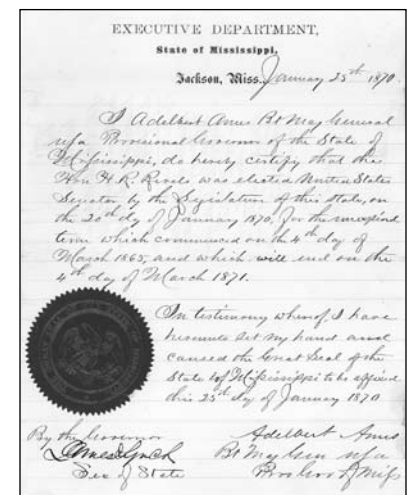 EXECUTIVE DEPARTMENT,
State of Mississippi,
Jackson, Miss., January 25th 1870.
I Adelbert Ames Bt Maj General
USA Provisional Governor of the State of
Mississippi, do hereby certify that the
Hon H. R. Revels was elected United States
Senator by the Legislature of this state, on
the 20th dy of January 1870, for the unexpired
term which commenced on the 4th day of
March 1865, and which will end on the
4th day of March 1871.
In testimony whereof, I have
hereunto set my hand and
caused the Great Seal of the
State of Mississippi to be affixed
this 25th day of January 1870
By the Governor
James Lynch
Sec of State
Adelbert Ames
Bt Maj Gen USA
Pro Gov of Miss